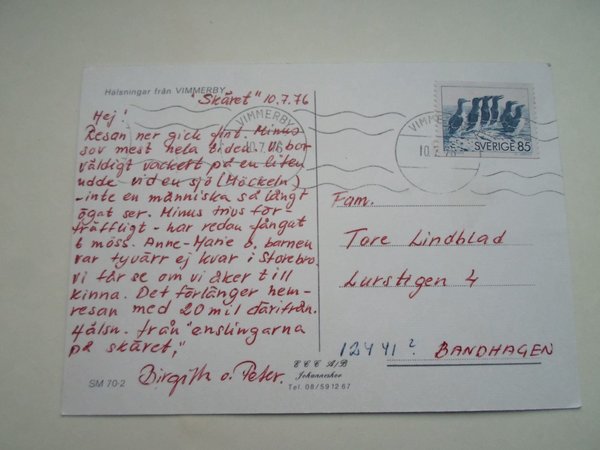 Hälsningar från VIMMERBY
"Skäret" 10.7.76
Hej!
Resan ner gick fint. Minus
sov mest hela tiden. Vi bor
väldigt vackert på en liten
udde vid en sjö (Möckeln)
- inte en människa så långt
ögat ser. Minus trivs för-
träffligt - har redan fångat
6 möss. Anne-Marie o. barnen
var tyvärr ej kvar i Storebro.
vi får se om vi åker till
kinna. Det förlänger hem-
resan med 20 mil därifrån.
Hälsn. från "enslingarna
på skäret,"
Birgitta o. Peter.
SM 70-2
VIMMERBY
10.7.76
VIMMERBY
10.7.76
SVERIGE 85
Fam.
Tore Lindblad
Lurstigen 4
12441? BANDHAGEN
E C C A/B
Johanneshov
Tel. 08/59 12 67